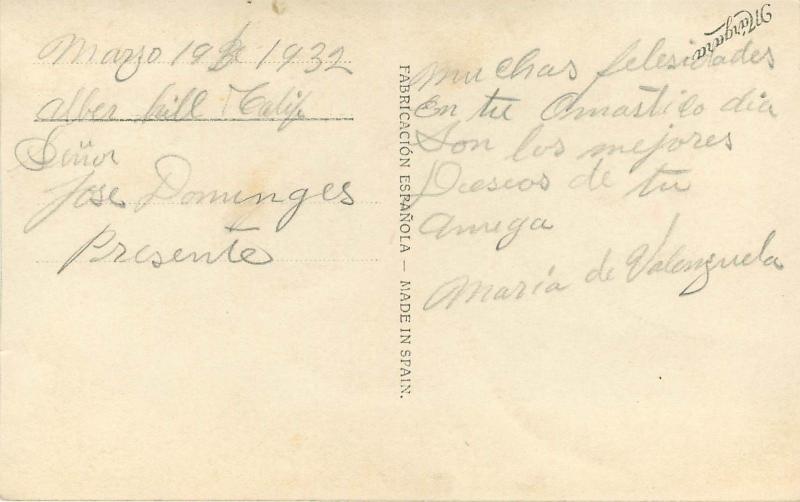 Marzo 19 de 1932
alber hill Calif
Señor
Jose Dominges
Presente
FABRICACIÓN ESPAÑOLA — MADE IN SPAIN.
Margara
Muchas felesidades
En tu Omastico dia
Son los mejores
Deseos de tu
amega
Maria de Valenzuela